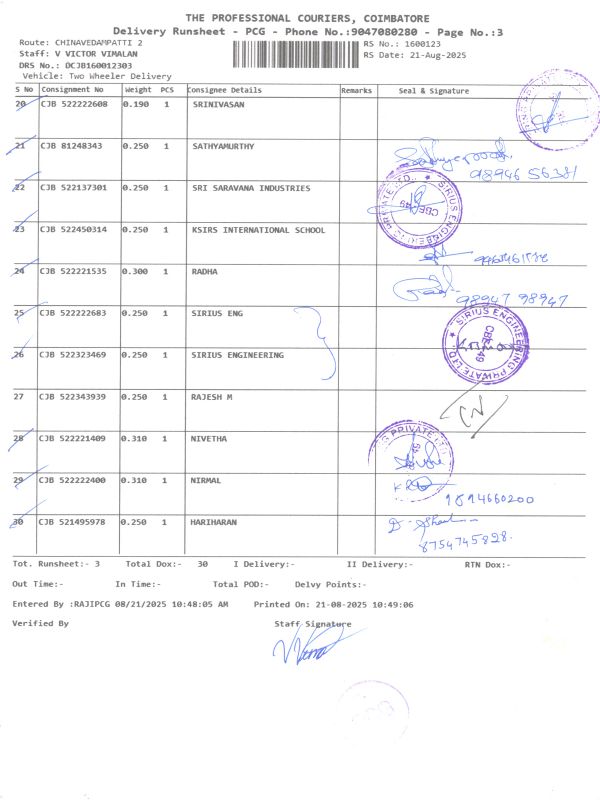 THE PROFESSIONAL COURIERS, COIMBATORE
Delivery Runsheet - PCG - Phone No.:9047080280 - Page No.:3
Route: CHINAVEDAMPATTI 2
RS No.: 1600123
Staff: V VICTOR VIMALAN
RS Date: 21-Aug-2025
DRS No.: DCJB160012303
Vehicle: Two Wheeler Delivery
S No Consignment No Weight PCS Consignee Details Remarks Seal & Signature
20 CJB 522222608 0.190 1 SRINIVASAN
21 CJB 81248343 0.250 1 SATHYAMURTHY
98946 56381
22 CJB 522137301 0.250 1 SRI SARAVANA INDUSTRIES
SIRIUS ENGINEERING PRIVATE LTD.
CBE-49
23 CJB 522450314 0.250 1 KSIRS INTERNATIONAL SCHOOL
24 CJB 522221535 0.300 1 RADHA
98947 98947
25 CJB 522222683 0.250 1 SIRIUS ENG
26 CJB 522323469 0.250 1 SIRIUS ENGINEERING
SIRIUS ENGINEERING PRIVATE LTD.
27 CJB 522343939 0.250 1 RAJESH M
28 CJB 522221409 0.310 1 NIVETHA
PRIVATE LTD
29 CJB 522222400 0.310 1 NIRMAL
9894660200
30 CJB 521495978 0.250 1 HARIHARAN
8754745828.
Tot. Runsheet:- 3 Total Dox:- 30 I Delivery:- II Delivery:- RTN Dox:-
Out Time:- In Time:- Total POD:- Delvy Points:-
Entered By :RAJIPCG 08/21/2025 10:48:05 AM Printed On: 21-08-2025 10:49:06
Verified By Staff Signature